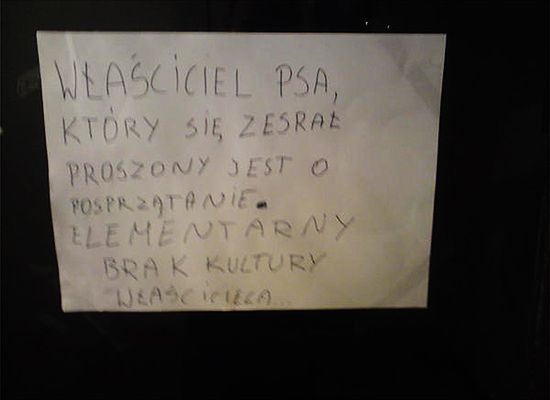 WŁAŚCICIEL PSA,
KTÓRY SIĘ ZESRAŁ
PROSZONY JEST O
POSPRZĄTANIE.
ELEMENTARNY
BRAK KULTURY
WŁAŚCICIELA...